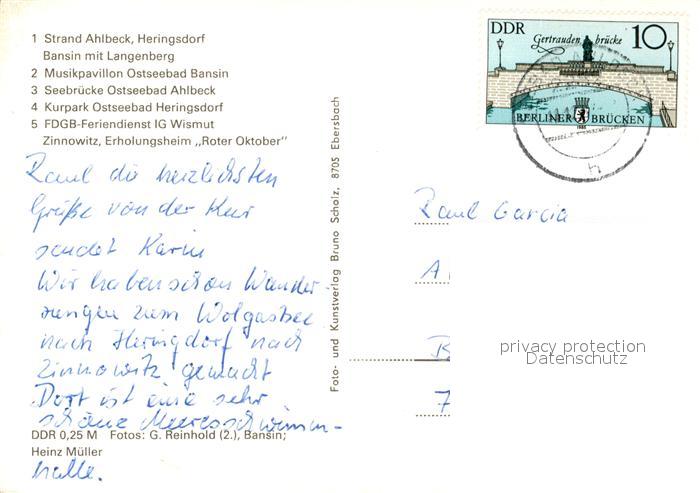 1 Strand Ahlbeck, Heringsdorf
Bansin mit Langenberg
2 Musikpavillon Ostseebad Bansin
3 Seebrücke Ostseebad Ahlbeck
4 Kurpark Ostseebad Heringsdorf
5 FDGB-Feriendienst IG Wismut
Zinnowitz, Erholungsheim „Roter Oktober"
Raul die herzlichsten
Grüße von der Kur
sendet Karin
Wir haben schon Wander
rungen zum Wolgastsee
nach Heringdorf nach
Zinnowitz gemacht
Dort ist eine sehr
schöne Meeresschwimm-
halle.
DDR 0,25 M Fotos: G. Reinhold (2.), Bansin;
Heinz Müller
Foto- und Kunstverlag Bruno Scholz, 8705 Ebersbach
DDR
Gertrauden brücke 10
BERLINER BRÜCKEN
1985
h
Raul Garcia
A
B
7
privacy protection
Datenschutz